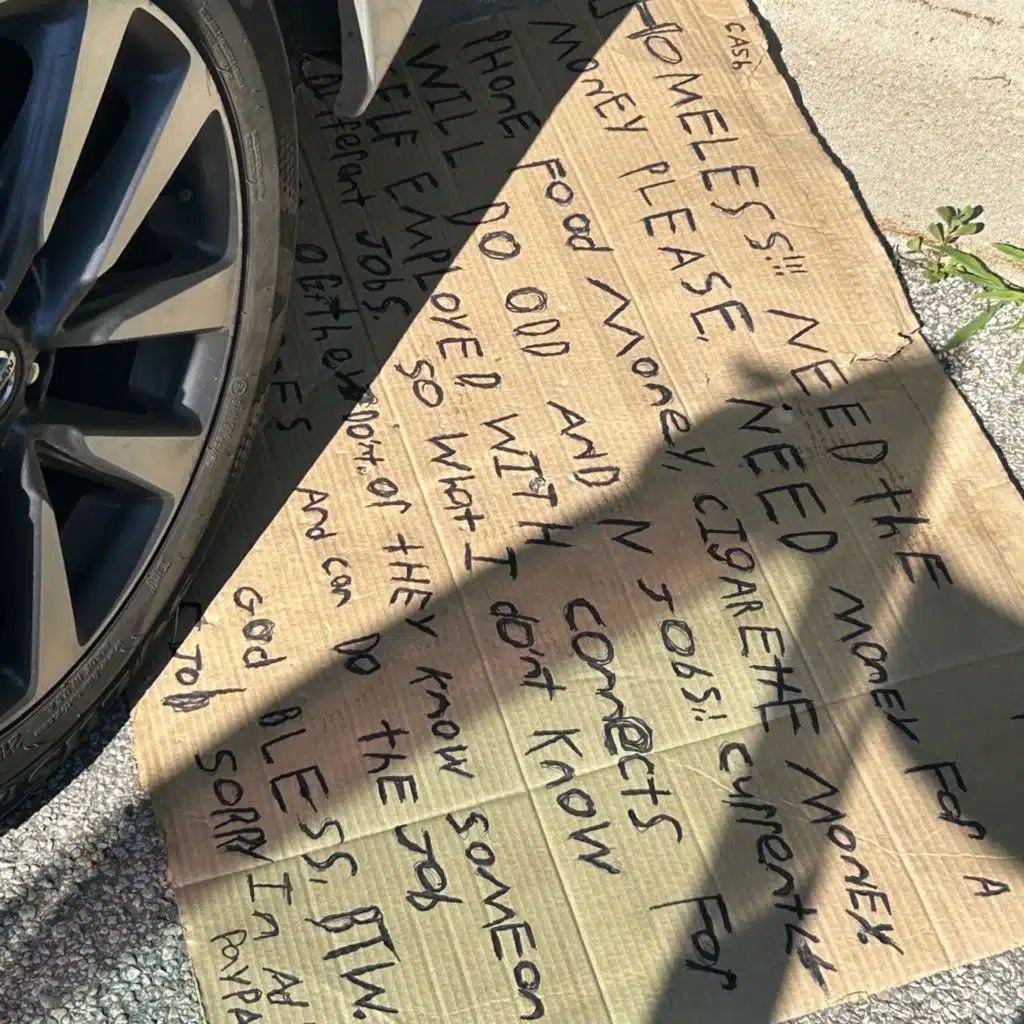 CASh
HOMELESS!!! NEED thE
MONEY PLEASE, NEED MONEY For A
PHONE, Food Money, CIGAREttE MONEY
WILL DO ODD AND N JOBS!! CURRENtLY
SELF EMPLOYED WITH CONNECTS For
JOBS. SO What I don't KNOW
OF them Don't. of tHEY KNOW SOMEON
And can DO tHE JOb
GOd BLESS. BTW.
JOb SORRY In
PayPa